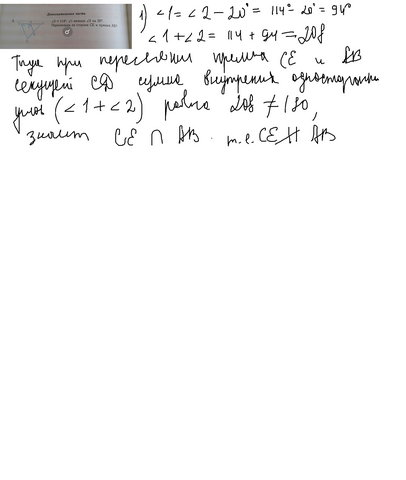 Дополнительная часть
1) ∠1 = ∠2 − 20° = 114° − 20° = 94°
∠1 + ∠2 = 114 + 94 = 208
Тогда при пересечении прямых CE и AB
секущей CD сумма внутренних односторонних
углов (∠1 + ∠2) равна 208 ≠ 180,
значит CE ∩ AB. т.е. CE ∦ AB